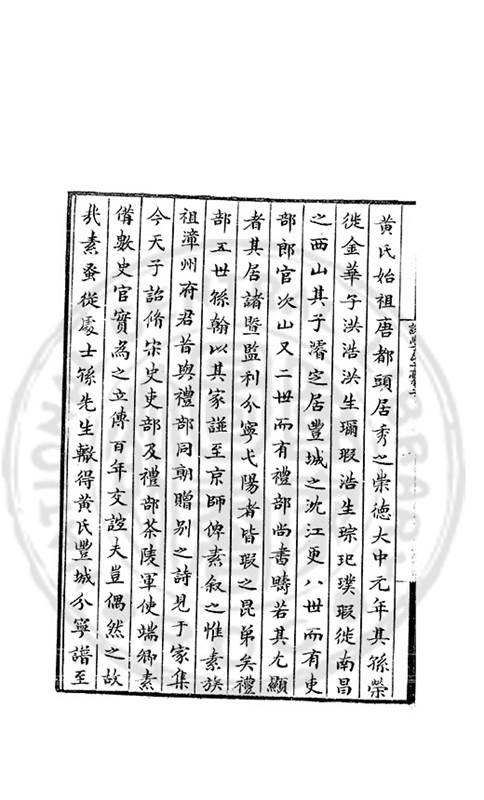 黃氏始祖唐都頭居秀之崇德大中元年其孫榮
徙金華子洪浩洪生璊瑕浩生琮玘璞瑕徙南昌
之西山其子濬定居豐城之沇江更八世而有吏
部郎官次山又二世而有禮部尚書疇若其尤顯
者其居諸暨監利分寧弋陽者皆瑕之昆弟矣禮
部五世孫翰以其家譜至京師俾素叙之惟素族
祖漳州府君昔與禮部同朝贈别之詩見于家集
今天子詔脩宋史吏部及禮部茶陵軍使端卿素
備數史官實為之立傳百年交誼夫豈偶然之故
㢤素蚤從處士孫先生轍得黃氏豐城分寧譜至